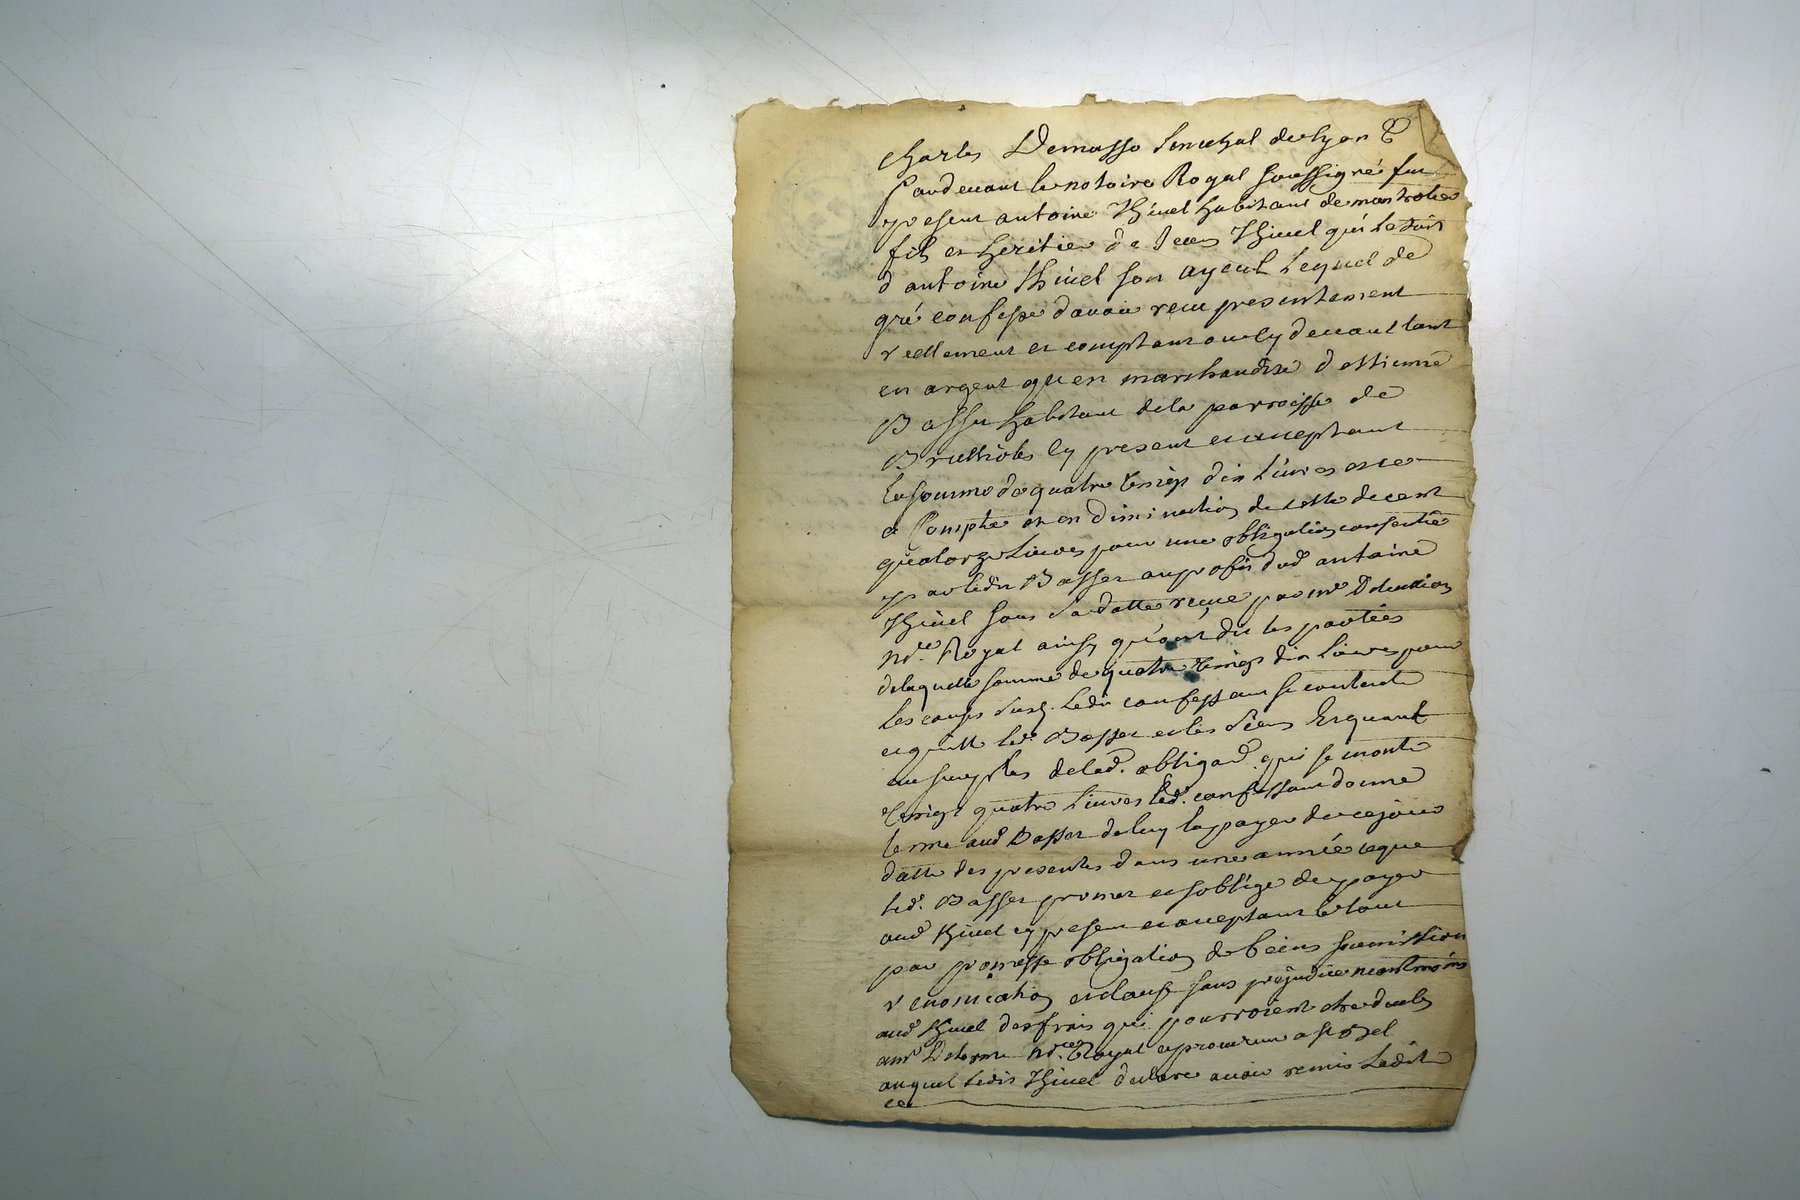 Charles Demasso Senechal de Lyon &
Pardevant le notaire Royal soussigné fut
present antoine Thivel habitant de montrotier
fils et heritier de Jean Thivel qui l'estoit
d'antoine Thivel son ayeul Lequel de
gré confesse d'avoir receu presentement
reellement et comptant au cy devant tant
en argent qu'en marchandise d'estienne
Basset habitant de la parroisse de
Brullioles cy present et acceptant
la somme de quatre vingts dix Livres et ce
a Compte et en diminution de celle de cent
quatorze Livres pour une obligation consentie
par ledit Basset au profit dud antoine
Thivel sous sa datte reçue par me
nore Royal ainsy qu'ont dit les parties
de laquelle somme de quatre vingts dix Livres pour
les causes susd. Ledit confessant se contente
et quitte led. Basset et les siens Et quant
au surplus de lad. obligaon qui se monte
vingt quatre Livres led. confessant donne
terme aud Basset de luy la payer de ce jour
datte des presentes dans une année ce que
led. Basset promet et s'oblige de payer
aud Thivel cy present et acceptant le tout
par promesse obligation de biens soumission
renonciation et clause sans prejudice neantmoins
aud Thivel des frais qui pourroient etre deubs
a me Delorme nore Royal et procureur a
auquel ledit Thivel declare avoir remis Ledit